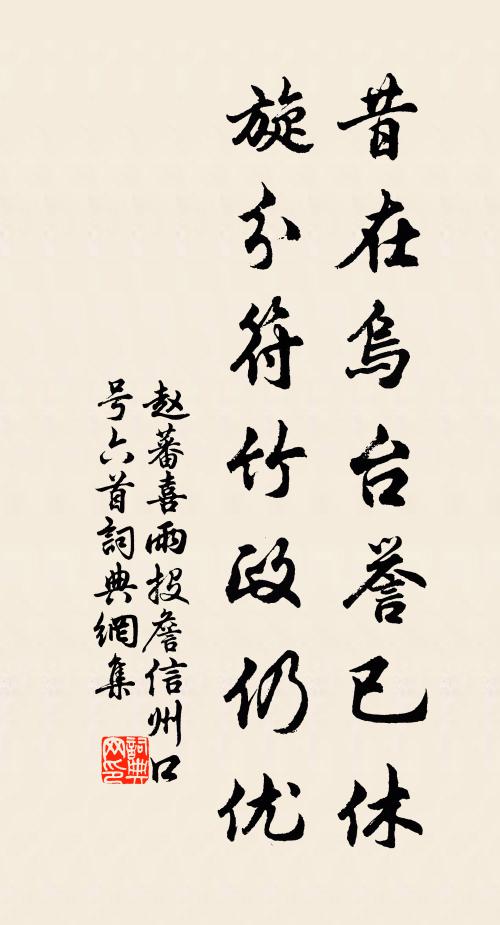 昔在烏台誉已休
旋分符竹政仍优
赵蕃喜雨投詹信州口
号六首詞典網集
詞典網印